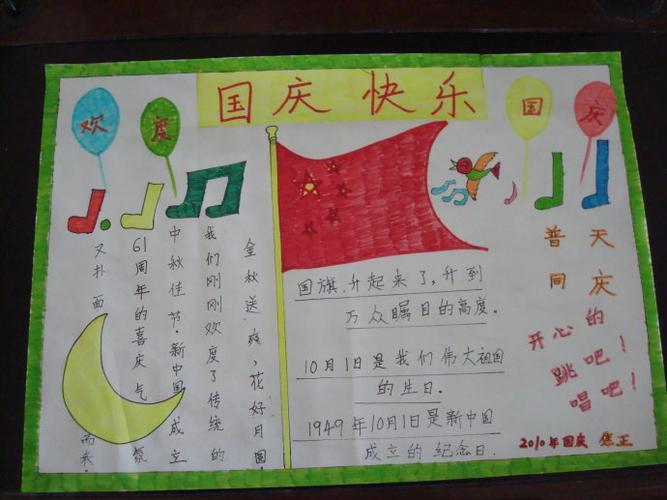 国庆快乐
欢度
国庆
金秋送爽、花好月圆,
我们刚刚欢度了传统的
中秋佳节.新中国成立
61周年的喜庆气氛
又扑面而来.
国旗升起来了,升到
万众瞩目的高度。
10月1日是我们伟大祖国
的生日.
1949年10月1日是新中国
成立的纪念日.
普天
同庆
开心的
跳吧!
唱吧!
2010年国庆